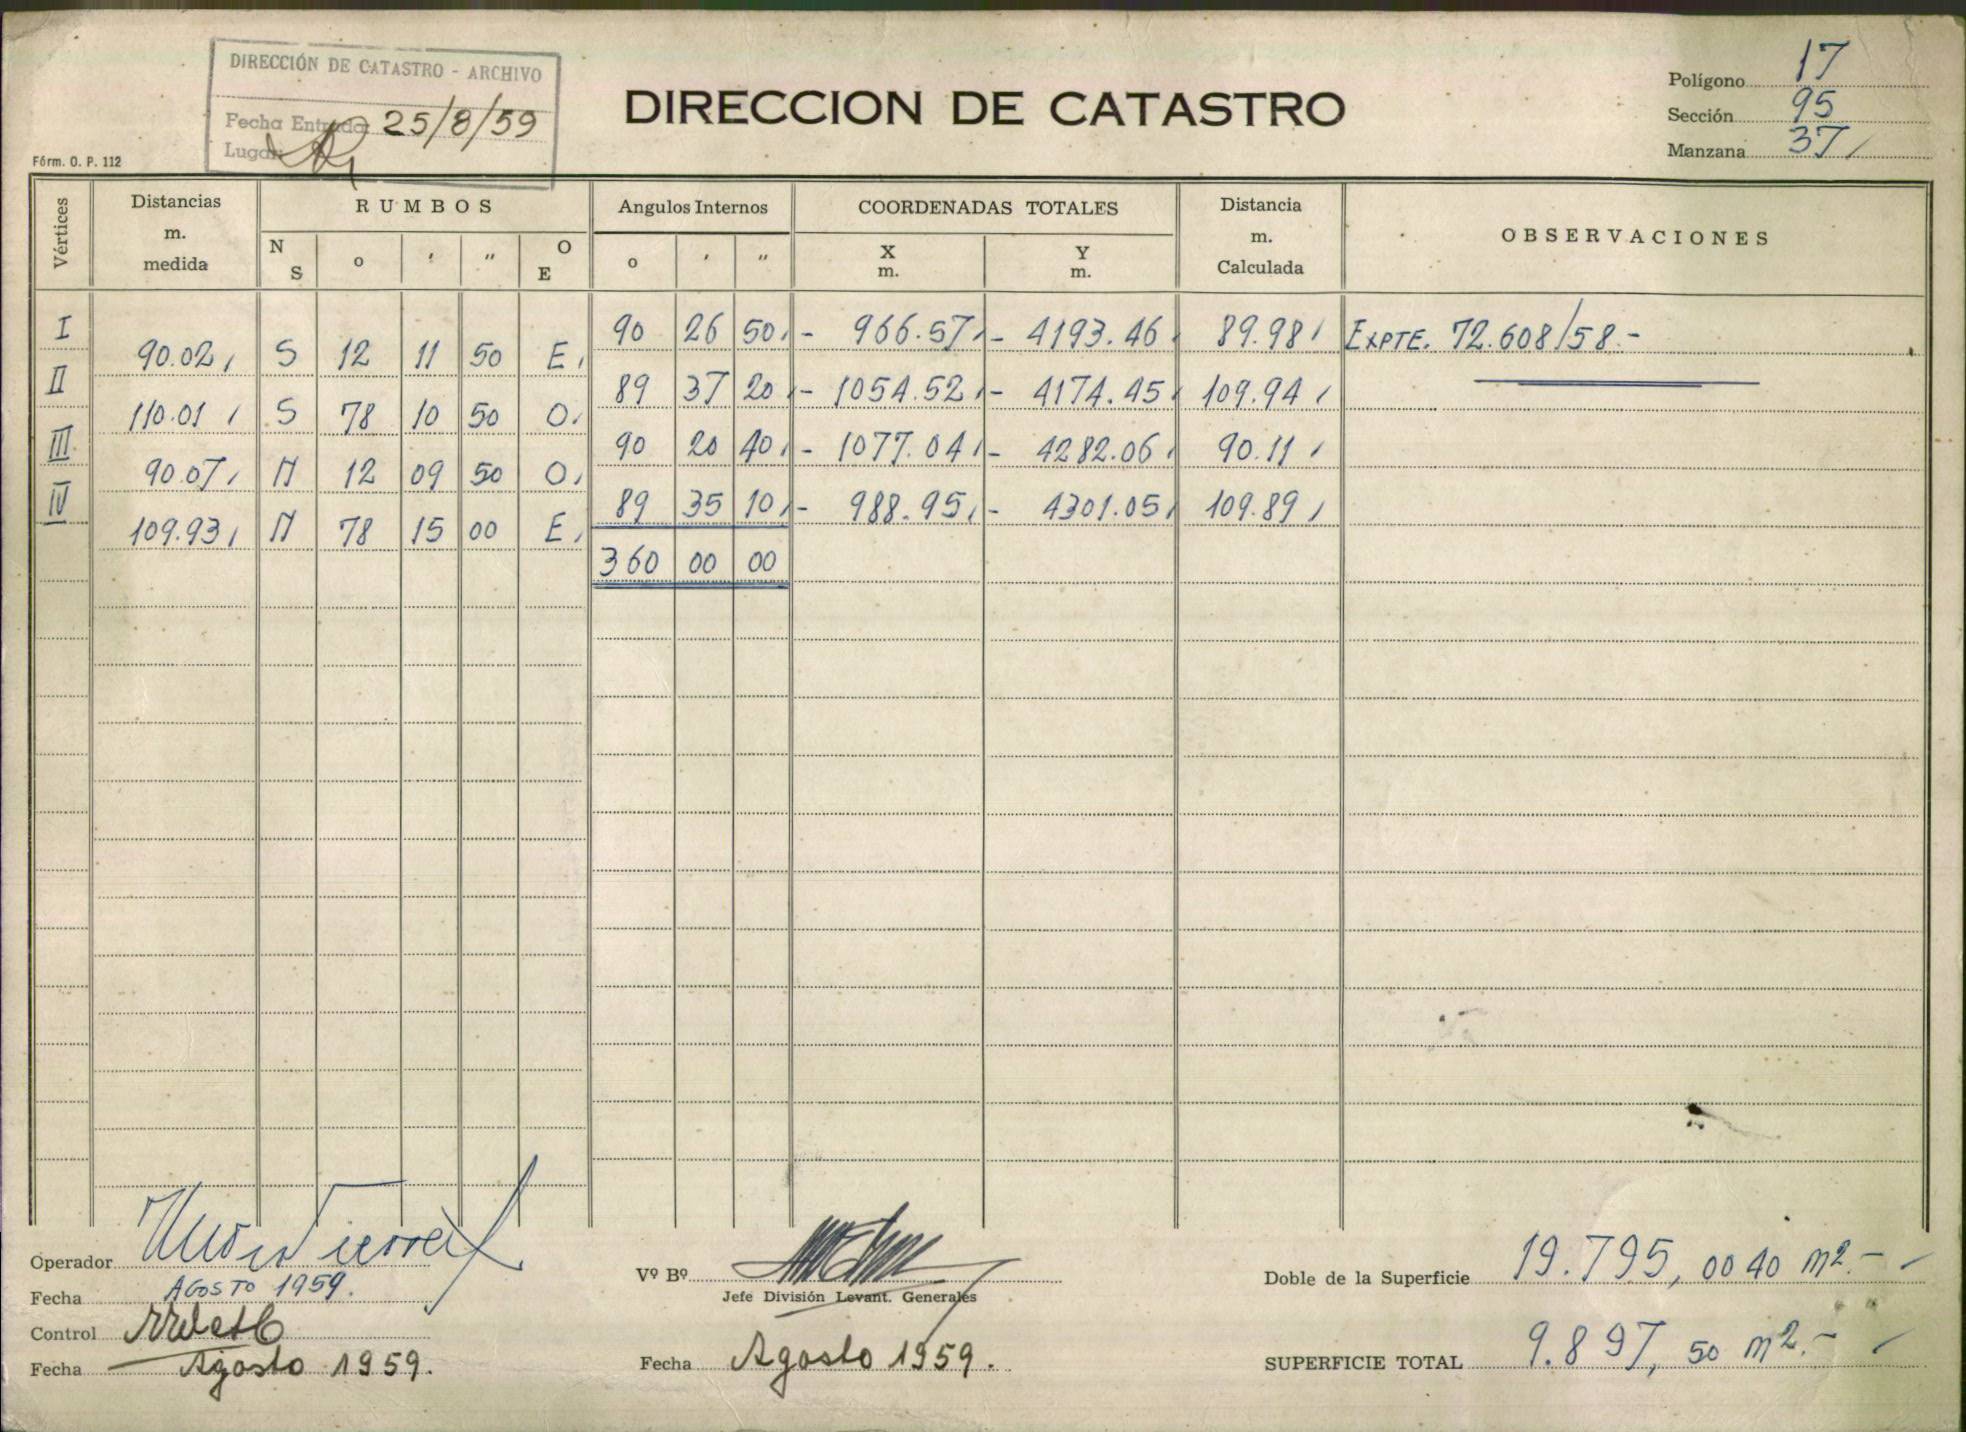 DIRECCIÓN DE CATASTRO - ARCHIVO
Fecha Entrada 25/8/59
Lugar:
DIRECCION DE CATASTRO
Polígono 17
Sección 95
Manzana 37
Fórm. O. P. 112
Vértices Distancias m. medida RUMBOS N S o ' " O E Angulos Internos o ' " COORDENADAS TOTALES X m. Y m. Distancia m. Calculada OBSERVACIONES
I 90 26 50 - 966.57 - 4193.46 89.98 EXPTE. 72.608/58.-
90.02 S 12 11 50 E
II 89 37 20 - 1054.52 - 4174.45 109.94
110.01 S 78 10 50 O
III 90 20 40 - 1077.04 - 4282.06 90.11
90.07 N 12 09 50 O
IV 89 35 10 - 988.95 - 4301.05 109.89
109.93 N 78 15 00 E
360 00 00
Operador
Fecha AGOSTO 1959.
Control
Fecha Agosto 1959.
Vº Bº
Jefe División Levant. Generales
Fecha Agosto 1959.
Doble de la Superficie 19.795,0040 m2.-
SUPERFICIE TOTAL 9.897,50 m2.-